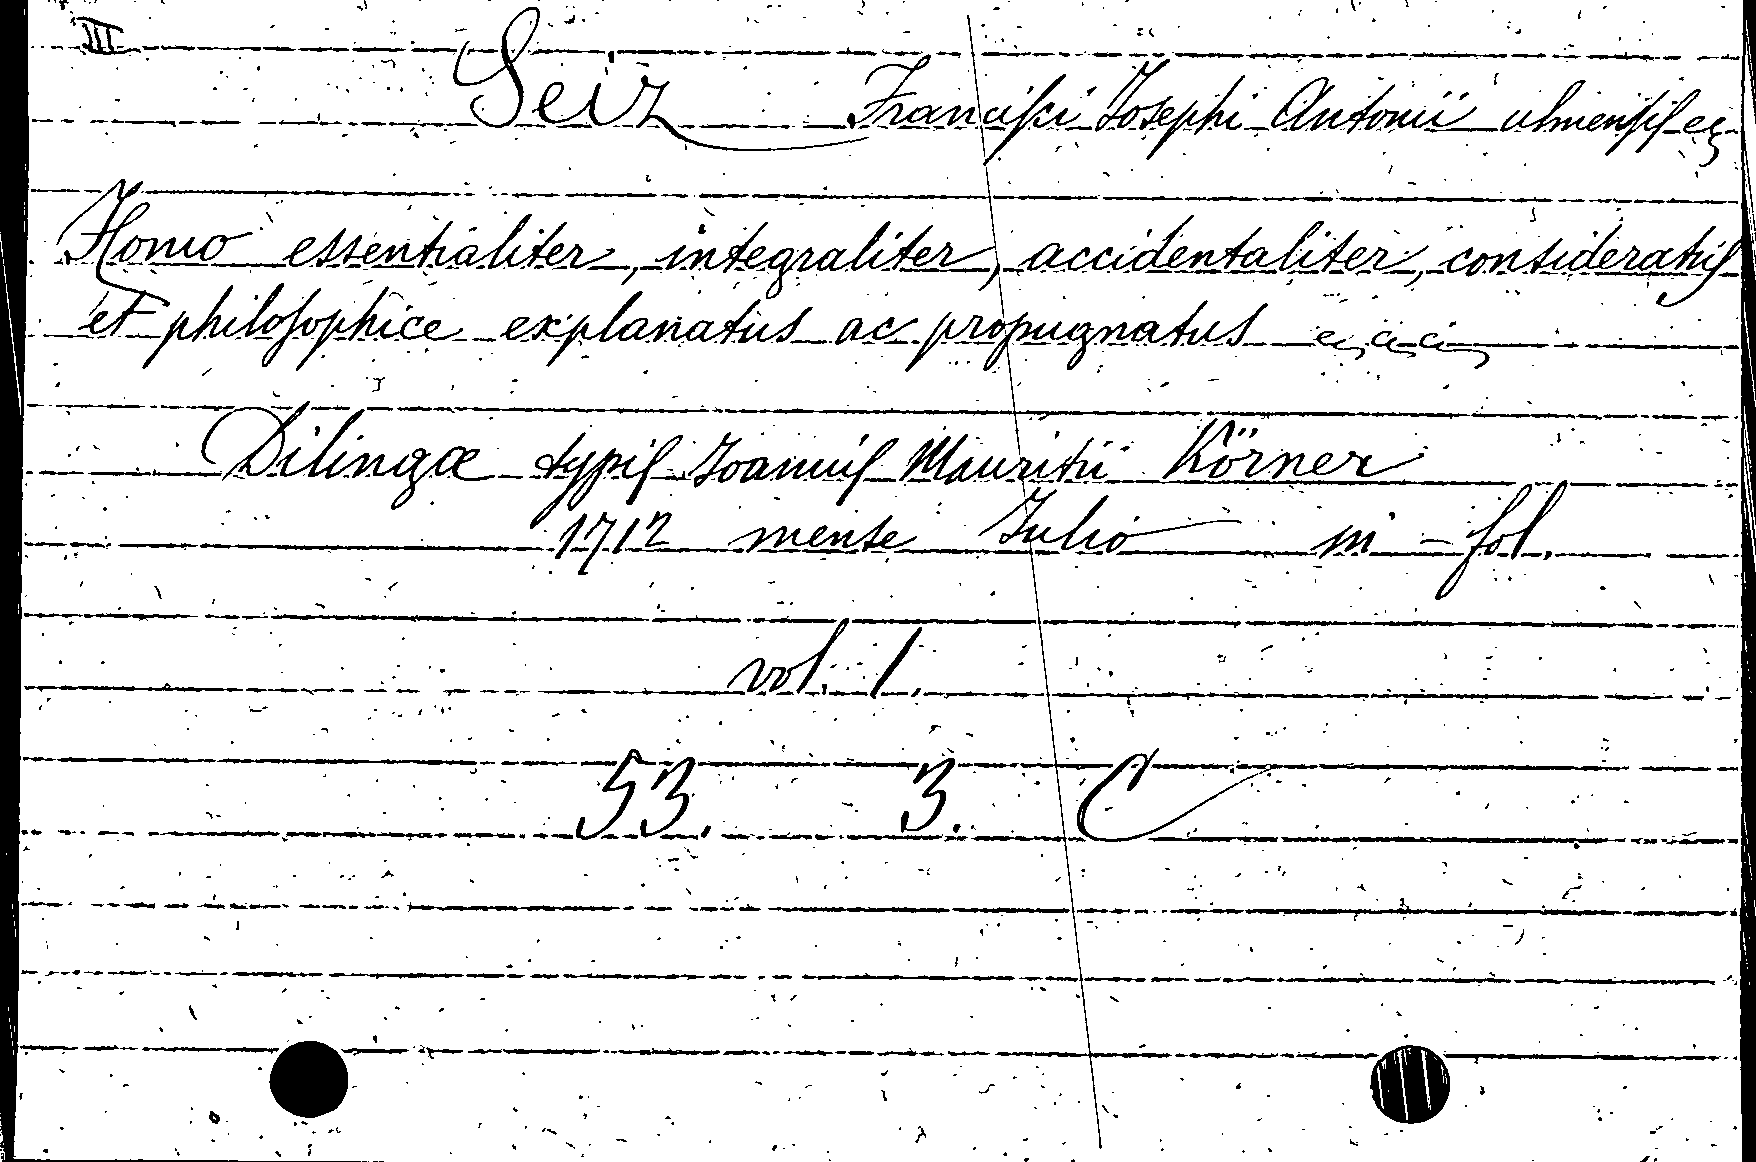 III
Seiz Franciſci Josephi Antonii ulmensiſ
Homo essentialiter, integraliter, accidentaliter, consideratuſ
et philoſophice explanatus ac propugnatus
Dilingæ typiſ Joanniſ Mauritii Körner
1712 mense Julio in-fol.
vol. 1.
53. 3. C